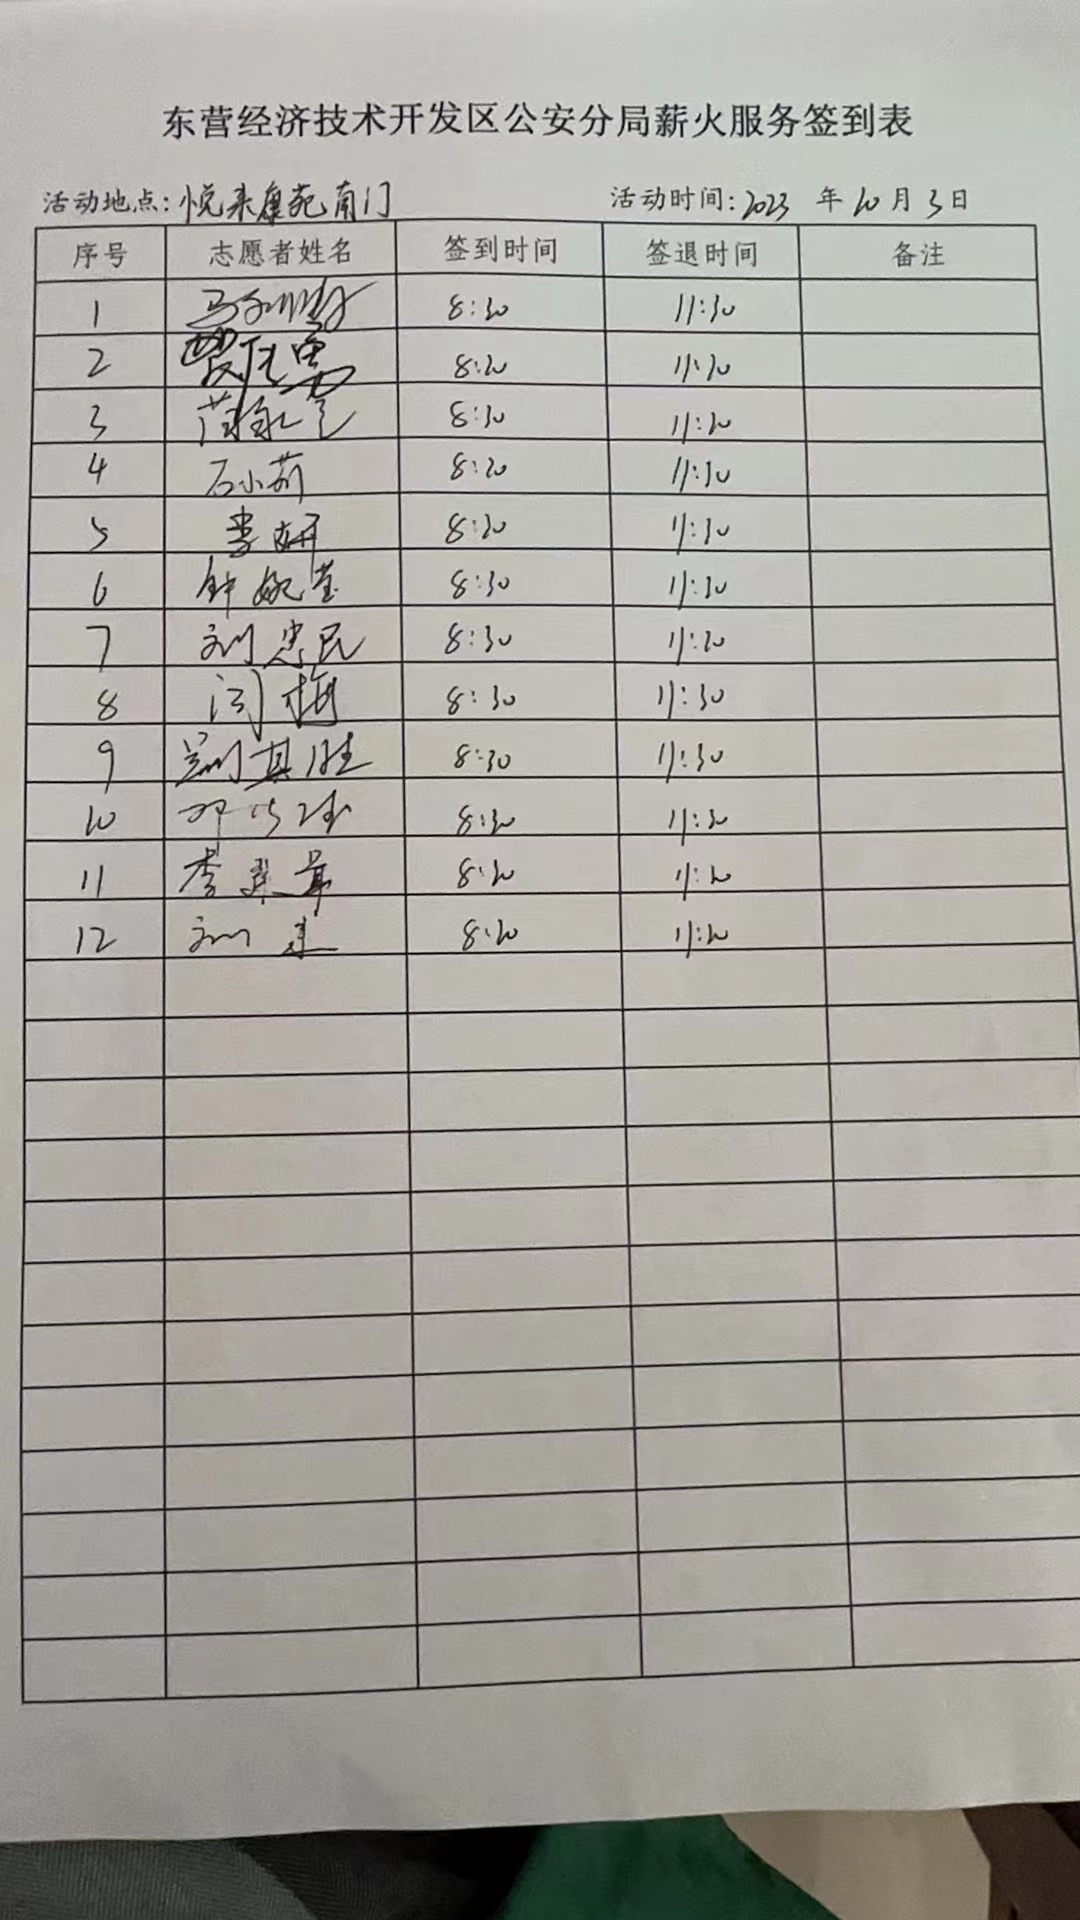 东营经济技术开发区公安分局薪火服务签到表
活动地点：悦来康苑南门 活动时间：2023 年 10 月 3 日
序号 志愿者姓名 签到时间 签退时间 备注
1 8:30 11:30
2 8:30 11:30
3 8:30 11:30
4 石小莉 8:30 11:30
5 李妍 8:30 11:30
6 钟婉莹 8:30 11:30
7 刘忠民 8:30 11:30
8 闫梅 8:30 11:30
9 其胜 8:30 11:30
10 8:30 11:30
11 李 8:30 11:30
12 刘建 8:30 11:30